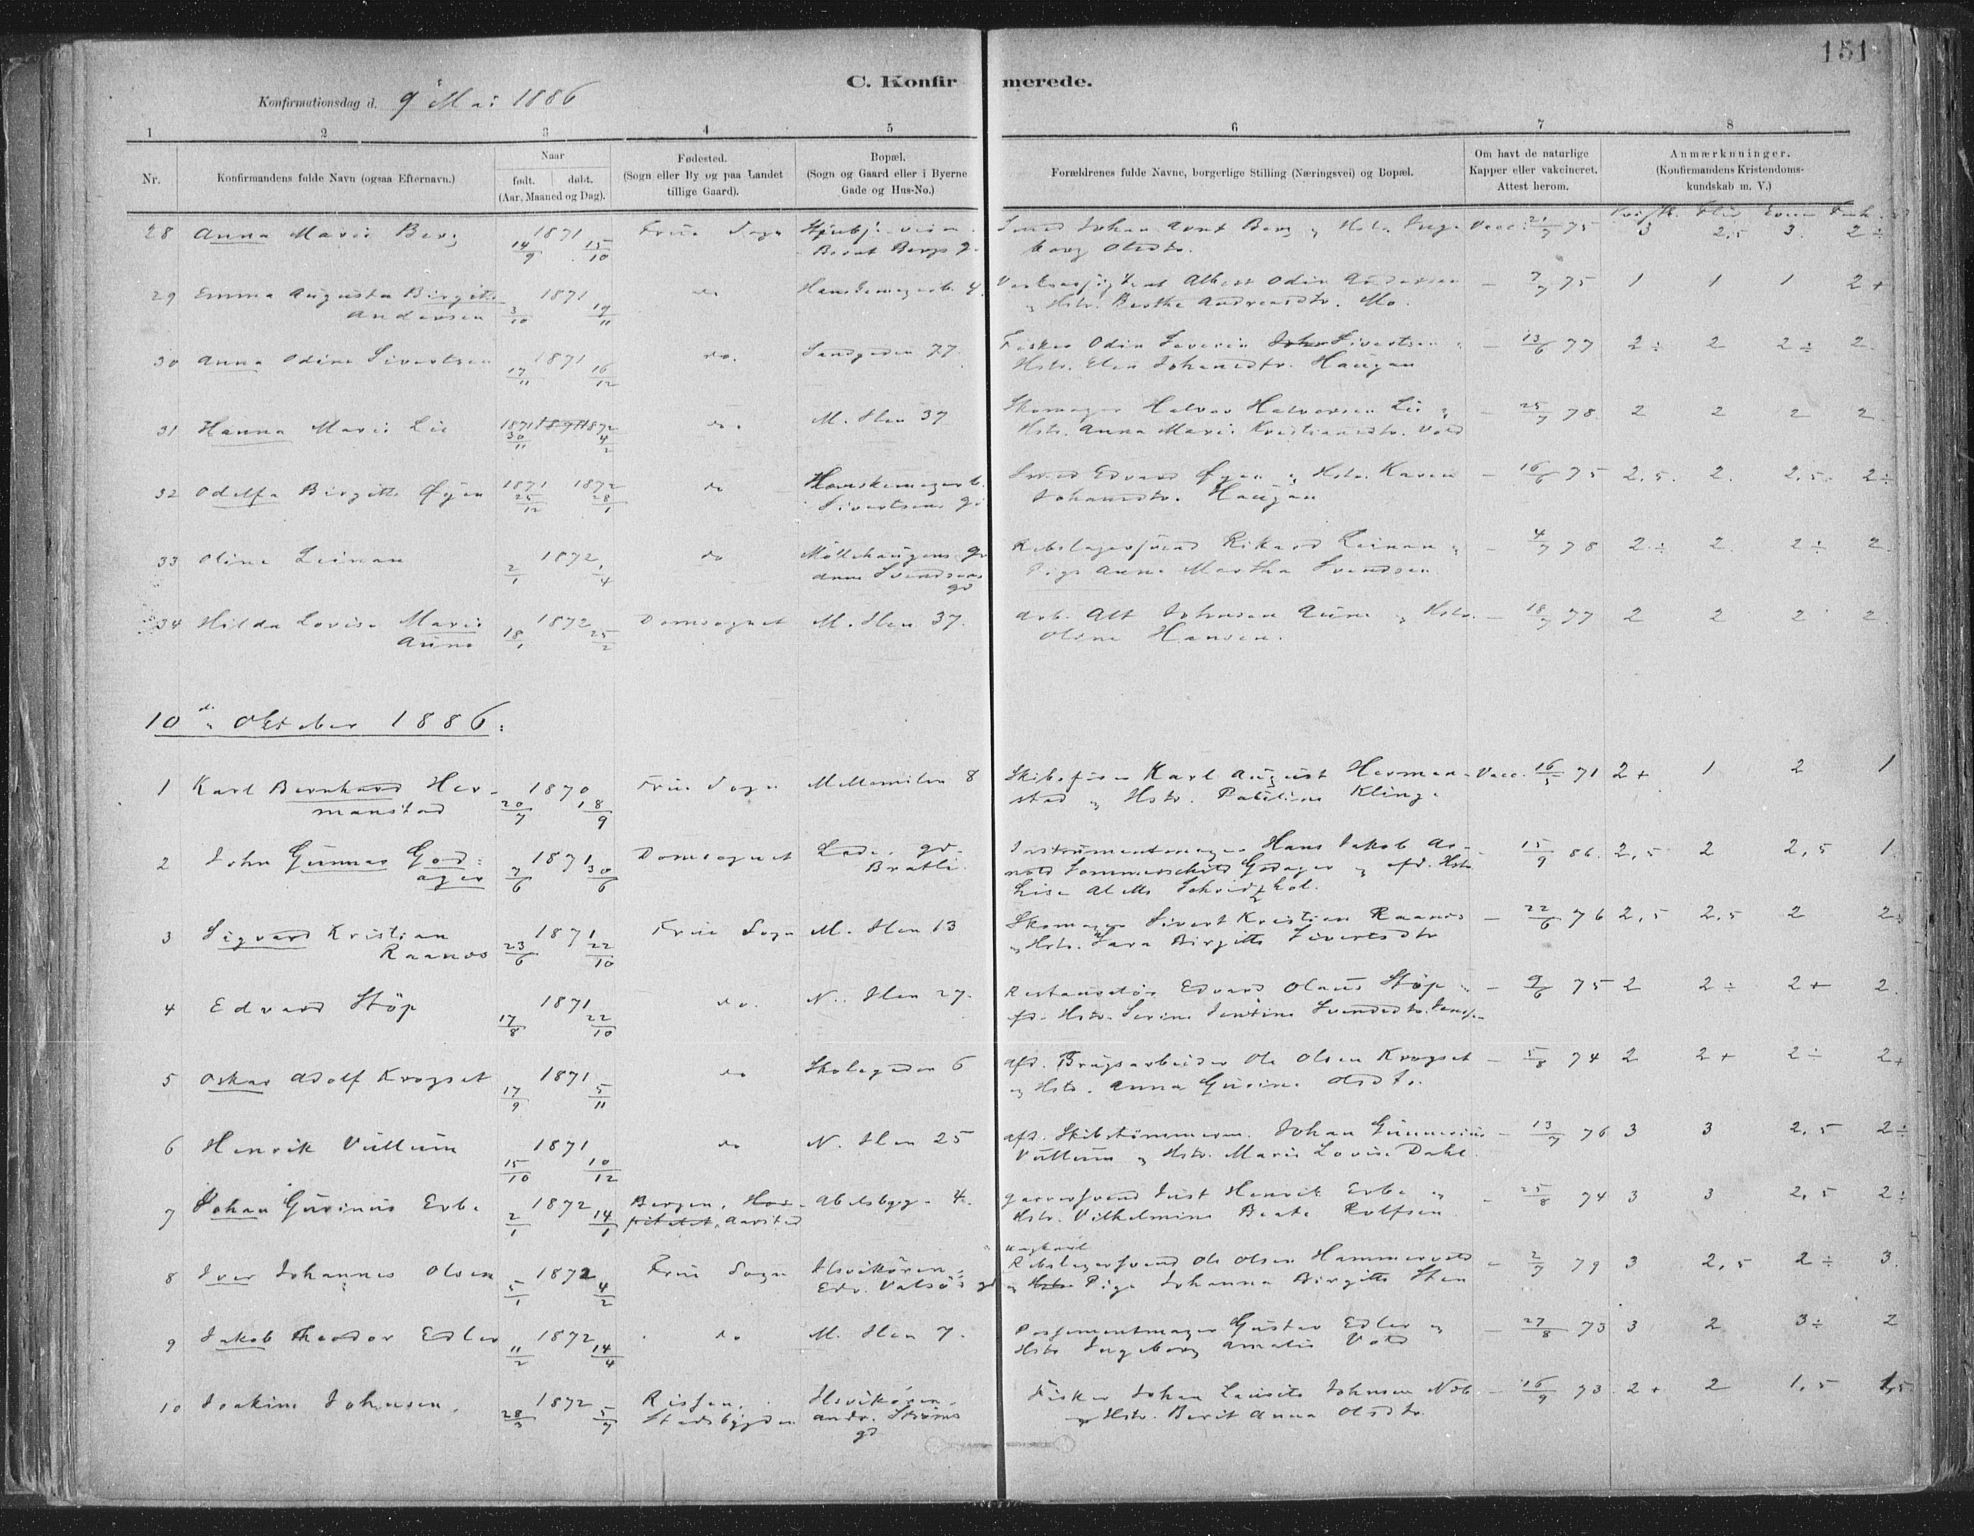 151
C. Konfirmerede.
Konfirmationsdag d. 9 Mai 1886
1 2 3 4 5 6 7 8
Nr.
Konfirmandens fulde Navn (ogsaa Efternavn.)
Naar
født. døbt.
(Aar, Maaned og Dag).
Fødested.
(Sogn eller By og paa Landet
tillige Gaard).
Bopæl.
(Sogn og Gaard eller i Byerne
Gade og Hus-No.)
Forældrenes fulde Navne, borgerlige Stilling (Næringsvei) og Bopæl.
Om havt de naturlige
Kapper eller vakcineret.
Attest herom.
Anmærkninger.
(Konfirmandens Kristendoms-
kundskab m. V.)
28 Anna Marie Berg 1871 14/9 15/10 Frue Sogn Smed Johan Arnt Berg og Hstr. Inge Vacc. 21/7 75 3 2,5 3 2÷
Bernt Bergs g. borg Olsdtr.
29 Emma Augusta Birgitte 1871 3/10 19/11 do 4 Albert Odin Andersen — 7/7 75 1 1 1 2+
Andersen og Hstr. Berthe Andreasdtr. Mo.
30 Anna Odine Sivertsen 1871 17/11 16/12 do. Sandgaden 77. Fisker Odin Severin Sivertsen — 13/6 77 2÷ 2 2÷ 2.
Hstr. Elen Johansdtr. Haugan
31 Hanna Marie Lie 1871 30/11 1872 4/2 do. M. Ilen 37 Skomager Halvor Halvorsen Lie og — 25/7 78 2 2 2 2
Hstr. Anna Marie Kristiansdtr. Vold
32 Odelfa Birgitte Øyen 1871 25/12 1872 28/1 do Hanskemagerb. Smed Edvard Øyen og Hstr. Karen — 16/6 75 2,5. 2. 2,5. 2÷
Sivertsens gd Johansdtr. Haugan
33 Oline Leinan 1872 2/1 1/4 do Möllehaugens gd Rebslagersvend Rikard Leinan og — 4/7 78 2÷ 2. 2÷ 2.
Anne Svendsens gd Pige Anne Martha Svendsen
34 Hilda Lovise Marie 1872 18/1 25/2 Domsognet M. Ilen 37. Arb. Alt Johnsen Aune og Hstr. — 18/7 77 2 2 2 2.
Aune Oline Hansen.
10de Oktober 1886.
1 Karl Bernhard Her- 1870 20/7 18/9 Frue Sogn Mellemilen 8 Skibsfører Karl August Herman- Vacc. 16/5 71 2+ 1 2 1
manstad stad og Hstr. Pauline Kling.
2 John Gunnar God- 1871 7/6 30/6 Domsognet Lade, gd. Instrumentmager Hans Jakob Ar- 15/9 86. 2,5 2 2,5 1
ager Bratli. nold Sommerschild Godager og afd. Hstr.
3 Sigvard Kristian 1871 23/6 22/10 Frue Sogn M. Ilen 13 Skomager Sivert Kristian Raanes — 22/6 76 2,5 2,5 2 2÷
Raanes og Hstr. Sara Birgitte Sivertsdtr
4 Edvard Støp 1871 17/8 22/10 do. N. Ilen 27. Restauratør Edvard Olaus Støp og — 9/6 75 2 2÷ 2+ 2.
afd. Hstr. Serine Jentine Svendsdtr.
5 Oskar Adolf Krogset 1871 17/9 5/11 do Skolegaden 6 afd. Brugsarbeider Ole Olsen Krogset — 5/8 74 2 2+ 2÷ 2+
og Hstr. Anna Gurine Olsdtr.
6 Henrik Vullum 1871 15/10 10/12 do N. Ilen 25 afd. Skibstømmerm. Johan Gunnerius — 13/7 76 3 3 2,5 2÷
Vullum og Hstr. Marie Lovise Dahl.
7 Johan Gurinus Erbe 1872 2/1 14/1 Bergen, Hos- Abelsbyg. 4. Garversvend Just Henrik Erbe og — 25/8 74 3 3 2,5 2÷
pitalet, Aarstad Hstr. Vilhelmine Beate Rolfsen
8 Iver Johannes Olsen 1872 5/1 4/2 Frue Sogn Ilsvikören, Rebslagersvend Ole Olsen Hammervold — 2/7 79 3 2,5 2÷ 3.
Edv. Valsös gd og Hstr Pige Johanna Birgitte Sten
9 Jakob Theodor Edler 1872 11/2 14/4 do M. Ilen 7. Possementmager Gustav Edler og — 27/8 73 3 2 3÷ 2
Hstr Ingeborg Amalie Vold
10 Joakim Johnsen. 1872 28/3 5/7 Rissen, Ilsvikören, Fisker Johan Lauritz Johnsen — 16/9 73 2+ 2 1,5 1,5
Stadsbygden gd og Hstr. Berit Anna Olsdtr.